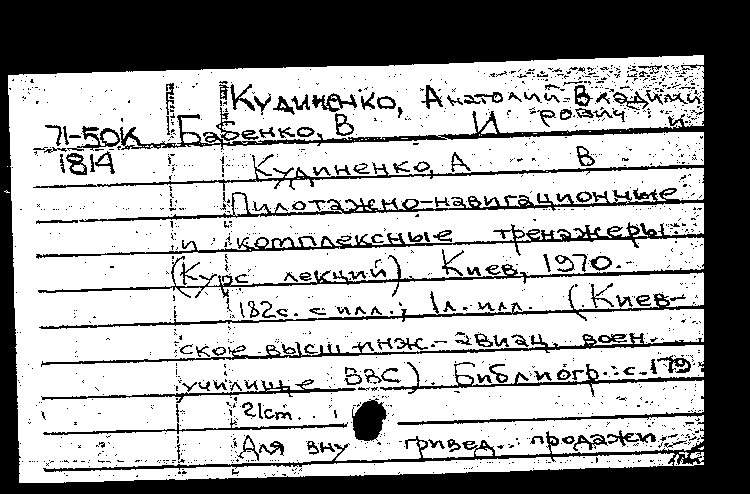 Кудиненко, Анатолий Владими
рович и
71-50К Бабенко, В И
1814 Кудиненко, А В
Пилотажно-навигационные
и комплексные тренажеры.
(Курс лекций). Киев, 1970.-
182с. с илл.; 1л. илл. (Киев-
ское высш инж.-авиац. воен.
училище ВВС). Библиогр.: с.179
21cm..
Для вну гривед.. продажи.